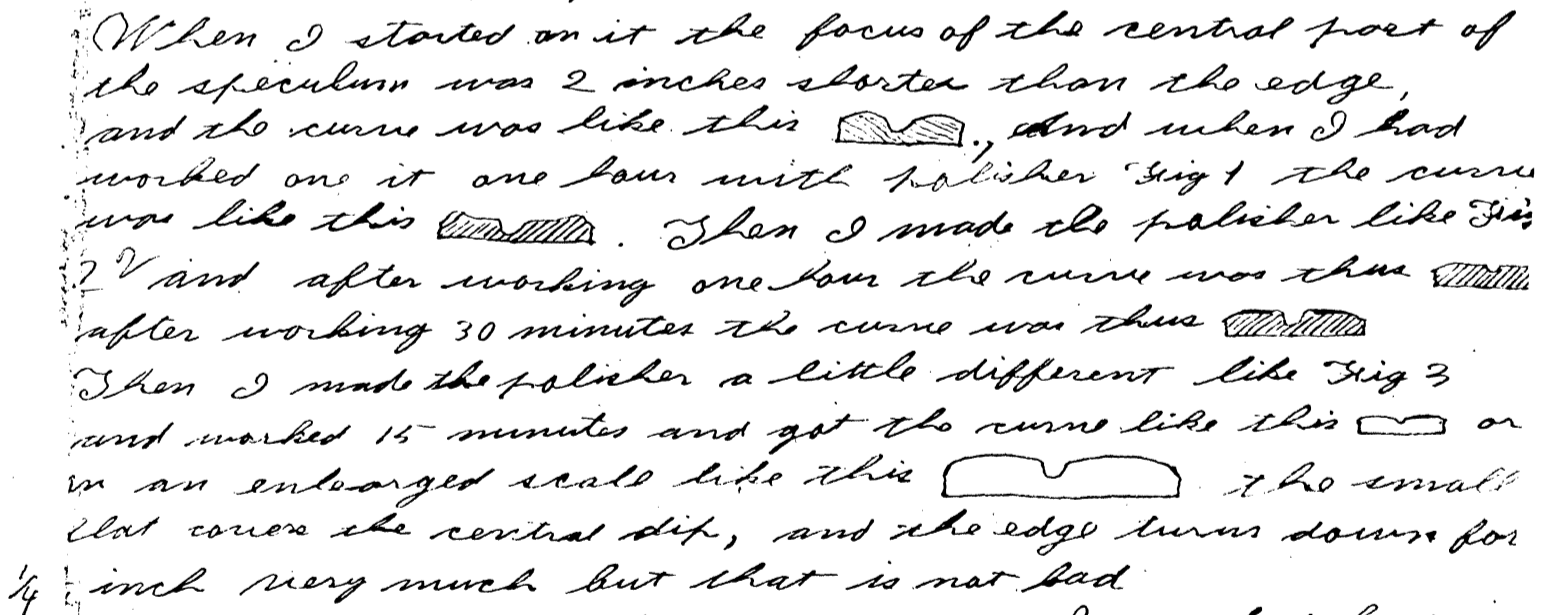 When I started on it the focus of the central part of
the speculum was 2 inches shorter than the edge,
and the curve was like this ., And when I had
worked one it one hour with polisher Fig 1 the curve
was like this . Then I made the polisher like Fig
2 and after working one hour the curve was thus
after working 30 minutes the curve was thus
Then I made the polisher a little different like Fig 3
and worked 15 minutes and got the curve like this or
in an enlarged scale like this the small
flat covers the central dip, and the edge turns down for
1/4 inch very much but that is not bad